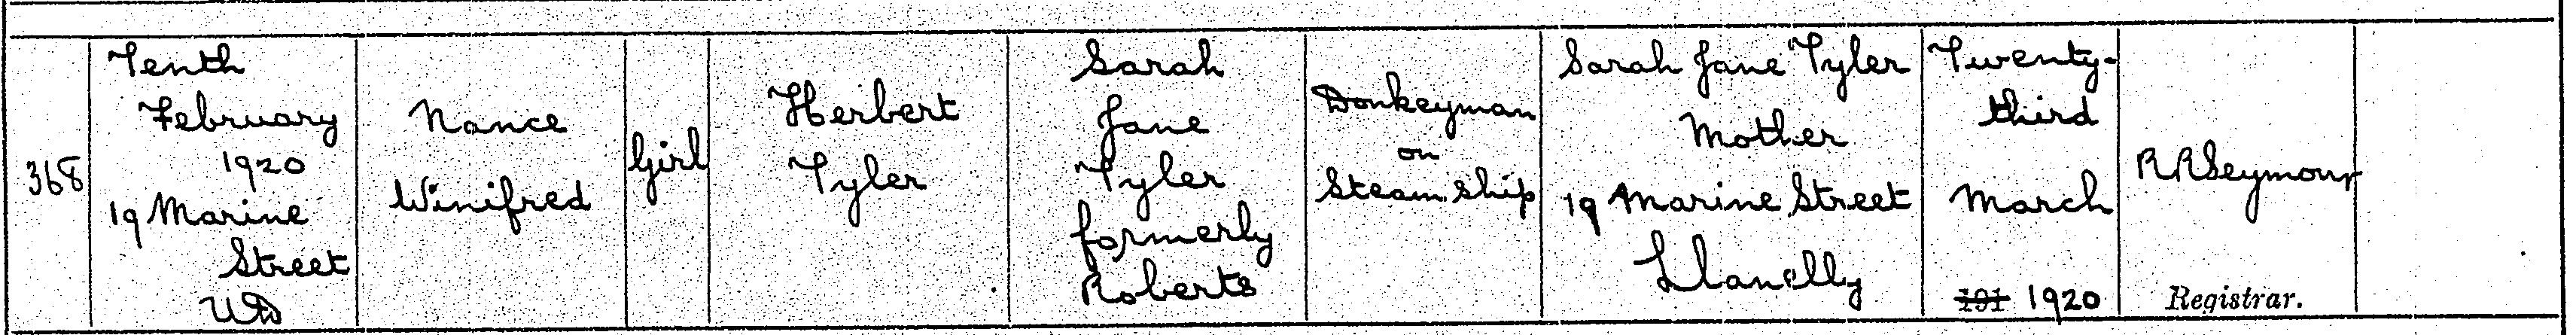 368
Tenth
February
1920
19 Marine
Street
UD
Nance
Winifred
Girl
Herbert
Tyler
Sarah
Jane
Tyler
formerly
Roberts
Donkeyman
on
Steam ship
Sarah Jane Tyler
Mother
19 Marine Street
Llanelly
Twenty-
third
March
191 1920
R R Seymour
Registrar.